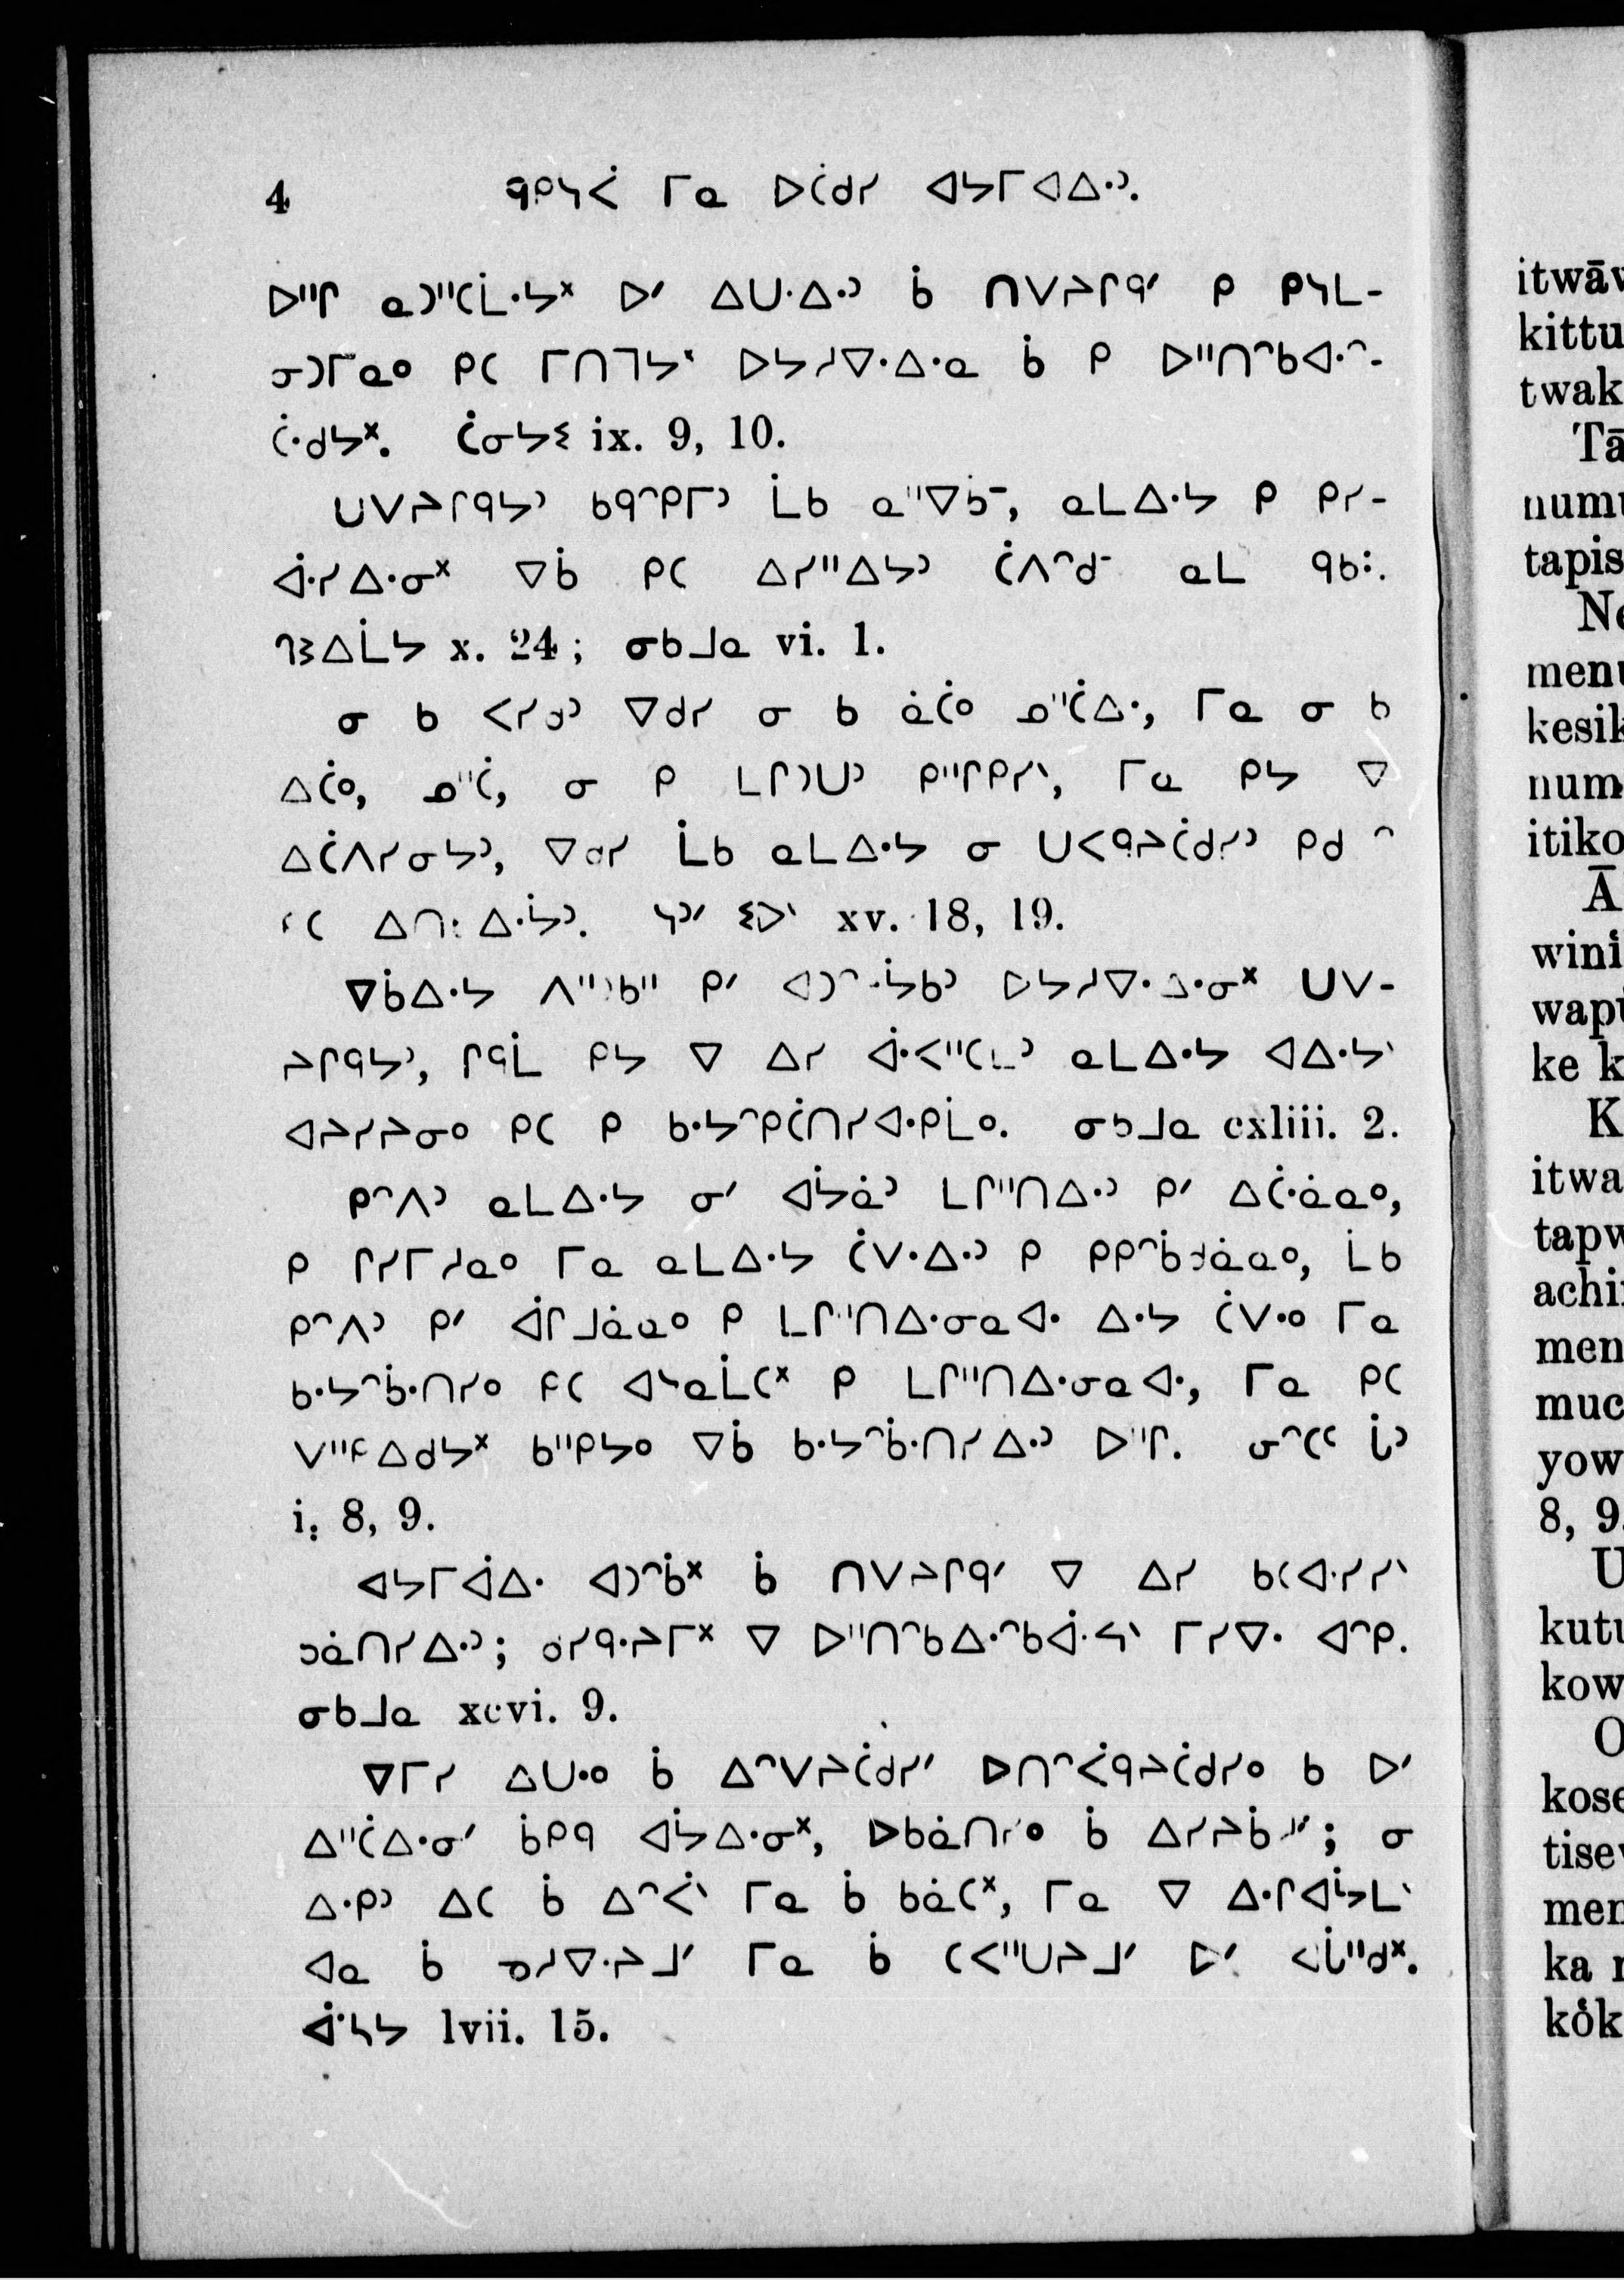 4 ᑫᑭᓴᐹ ᒥᓇ ᐅᑖᑯᓯ ᐊᔭᒥᐊᐃᐧᐣ.
ᐅᐦᒋ ᓇᑐᐦᑕᒫᐧᔭᕽ ᐅᐟ ᐃᑌᐧᐃᐧᐣ ᑳ ᑎᐯᔨᒋᑫᐟ ᑭ ᑭᓴᒪ-
ᓂᑐᒥᓇᐤ ᑭᑕ ᒥᑎᒣᔭᐠ ᐅᔭᓱᐁᐧᐃᐧᓇ ᑳ ᑭ ᐅᐦᑎᐢᑲᐊᐧᐢ-
ᑖᐧᑯᔭᕽ. ᑖᓂᔭᓬ ix. 9, 10.
ᑌᐯᔨᒋᑫᔭᐣ ᑲᑫᐢᑭᒥᐣ ᒫᑲ ᓇᐦᐁᑳᐨ, ᓇᒪᐃᐧᔭ ᑭ ᑭᓯ-
ᐚᓯᐃᐧᓂᕽ ᐁᑳ ᑭᑕ ᐃᓯᐦᐃᔭᐣ ᑖᐱᐢᑯᐨ ᓇᒪ ᑫᑲᐧᐩ.
ᒉᕒᐃᒫᔭ x. 24; ᓂᑲᒧᓇ vi. 1.
ᓂ ᑲ ᐸᓯᑯᐣ ᐁᑯᓯ ᓂ ᑲ ᓈᑖᐤ ᓄᐦᑖᐃᐧ, ᒥᓇ ᓂ ᑲ
ᐃᑖᐤ, ᓄᐦᑖ, ᓂ ᑭ ᒪᒋᑐᑌᐣ ᑭᐦᒋᑭᓯᐠ, ᒥᓇ ᑭᔭ ᐁ
ᐃᑖᐱᓯᓂᔭᐣ, ᐁᑯᓯ ᒫᑲ ᓇᒪᐃᐧᔭ ᓂ ᑌᐸᑫᔨᑖᑯᓯᐣ ᑭᑯᐢ
ᐃᐧᔮᐣ. ᓴᐣᐟ ᓬᐅᐠ xv. 18, 19.
ᐁᑳᐃᐧᔭ ᐱᐦᑐᑲᐦ ᑭᐟ ᐊᑐᐢᑫᔮᑲᐣ ᐅᔭᓱᐁᐧᐃᐧᓂᕽ ᑌᐯ-
ᔨᒋᑫᔭᐣ, ᒋᑫᒫ ᑭᔭ ᐁ ᐃᓯ ᐚᐸᐦᑕᒪᐣ ᓇᒪᐃᐧᔭ ᐊᐃᐧᔭᐠ
ᐊᔨᓯᔨᓂᐤ ᑭᑕ ᑭ ᑲᐧᔭᐢᑭᑖᑎᓯᐊᐧᑭᒫᐤ. ᓂᑲᒧᓇ cxliii. 2.
ᑭᐢᐱᐣ ᓇᒪᐃᐧᔭ ᓂᐟ ᐊᔮᓈᐣ ᒪᒋᐦᑎᐃᐧᐣ ᑭᐟ ᐃᑖᐧᓈᓇᐤ,
ᑭ ᒋᓯᒥᓱᓇᐤ ᒥᓇ ᓇᒪᐃᐧᔭ ᑖᐯᐧᐃᐧᐣ ᑭ ᑭᑭᐢᑳᑯᓈᓇᐤ, ᒫᑲ
ᑭᐢᐱᐣ ᑭᐟ ᐋᒋᒧᓈᓇᐤ ᑭ ᒪᒋᐦᑎᐃᐧᓂᓇᐊᐧ ᐃᐧᔭ ᑖᐯᐧᐤ ᒥᓇ
ᑲᐧᔭᐢᑳᐧᑎᓯᐤ ᑭᑕ ᐊᓭᓇᒫᑕᕽ ᑭ ᒪᒋᐦᑎᐃᐧᓂᓇᐊᐧ, ᒥᓇ ᑭᑕ
ᐯᐦᑭᐃᑯᔭᕽ ᑲᐦᑭᔭᐤ ᐁᑳ ᑲᐧᔭᐢᑳᐧᑎᓯᐃᐧᐣ ᐅᐦᒋ. ᓂᐢᑕᑦ ᒑᐣ
i. 8, 9.
ᐊᔭᒥᐋᐃᐧ ᐊᑐᐢᑳᕽ ᑳ ᑎᐯᔨᒋᑫᐟ ᐁ ᐃᓯ ᑲᑕᐊᐧᓯᓯᐠ
ᑐᓈᑎᓯᐃᐧᐣ; ᑯᓯᑫᐧᔨᒥᕽ ᐁ ᐅᐦᑎᐢᑲᐃᐧᐢᑲᐚᓴᐠ ᒥᓯᐁᐧ ᐊᐢᑭ.
ᓂᑲᒧᓇ xcvi. 9.
ᐁᒥᓯ ᐃᑌᐧᐤ ᑳ ᐃᐢᐯᔨᑖᑯᓯᐟ ᐅᑎᐢᐹᑫᔨᑖᑯᓯᐤ ᑲ ᐅᐟ
ᐃᐦᑖᐃᐧᓂᐟ ᑳᑭᑫ ᐊᔮᐃᐧᓂᕽ, ᐅᑲᓈᑎᓯᐤ ᑳ ᐃᓯᔨᑳᓱᐟ; ᓂ
ᐃᐧᑭᐣ ᐃᑕ ᑳ ᐃᐢᐹᐠ ᒥᓇ ᑳ ᑲᓈᑕᕽ, ᒥᓇ ᐁ ᐃᐧᒋᐊᔮᒪᐠ
ᐊᓇ ᑳ ᓄᓱᐁᐧᔨᒧᐟ ᒥᓇ ᑳ ᑕᐸᐦᑌᔨᒧᐟ ᐅᐟ ᐊᒑᐦᑯᕽ.
ᐋᐧᓴᔭ lvii. 15.
itwāw
kittu
twak
numu
tapis
menu
kesik
num
itiko
Ā
wini
wapu
ke k
K
itwa
tapw
achi
men
muc
yow
8, 9
U
kutu
kow
O
kose
tisew
men
ka
kȯk